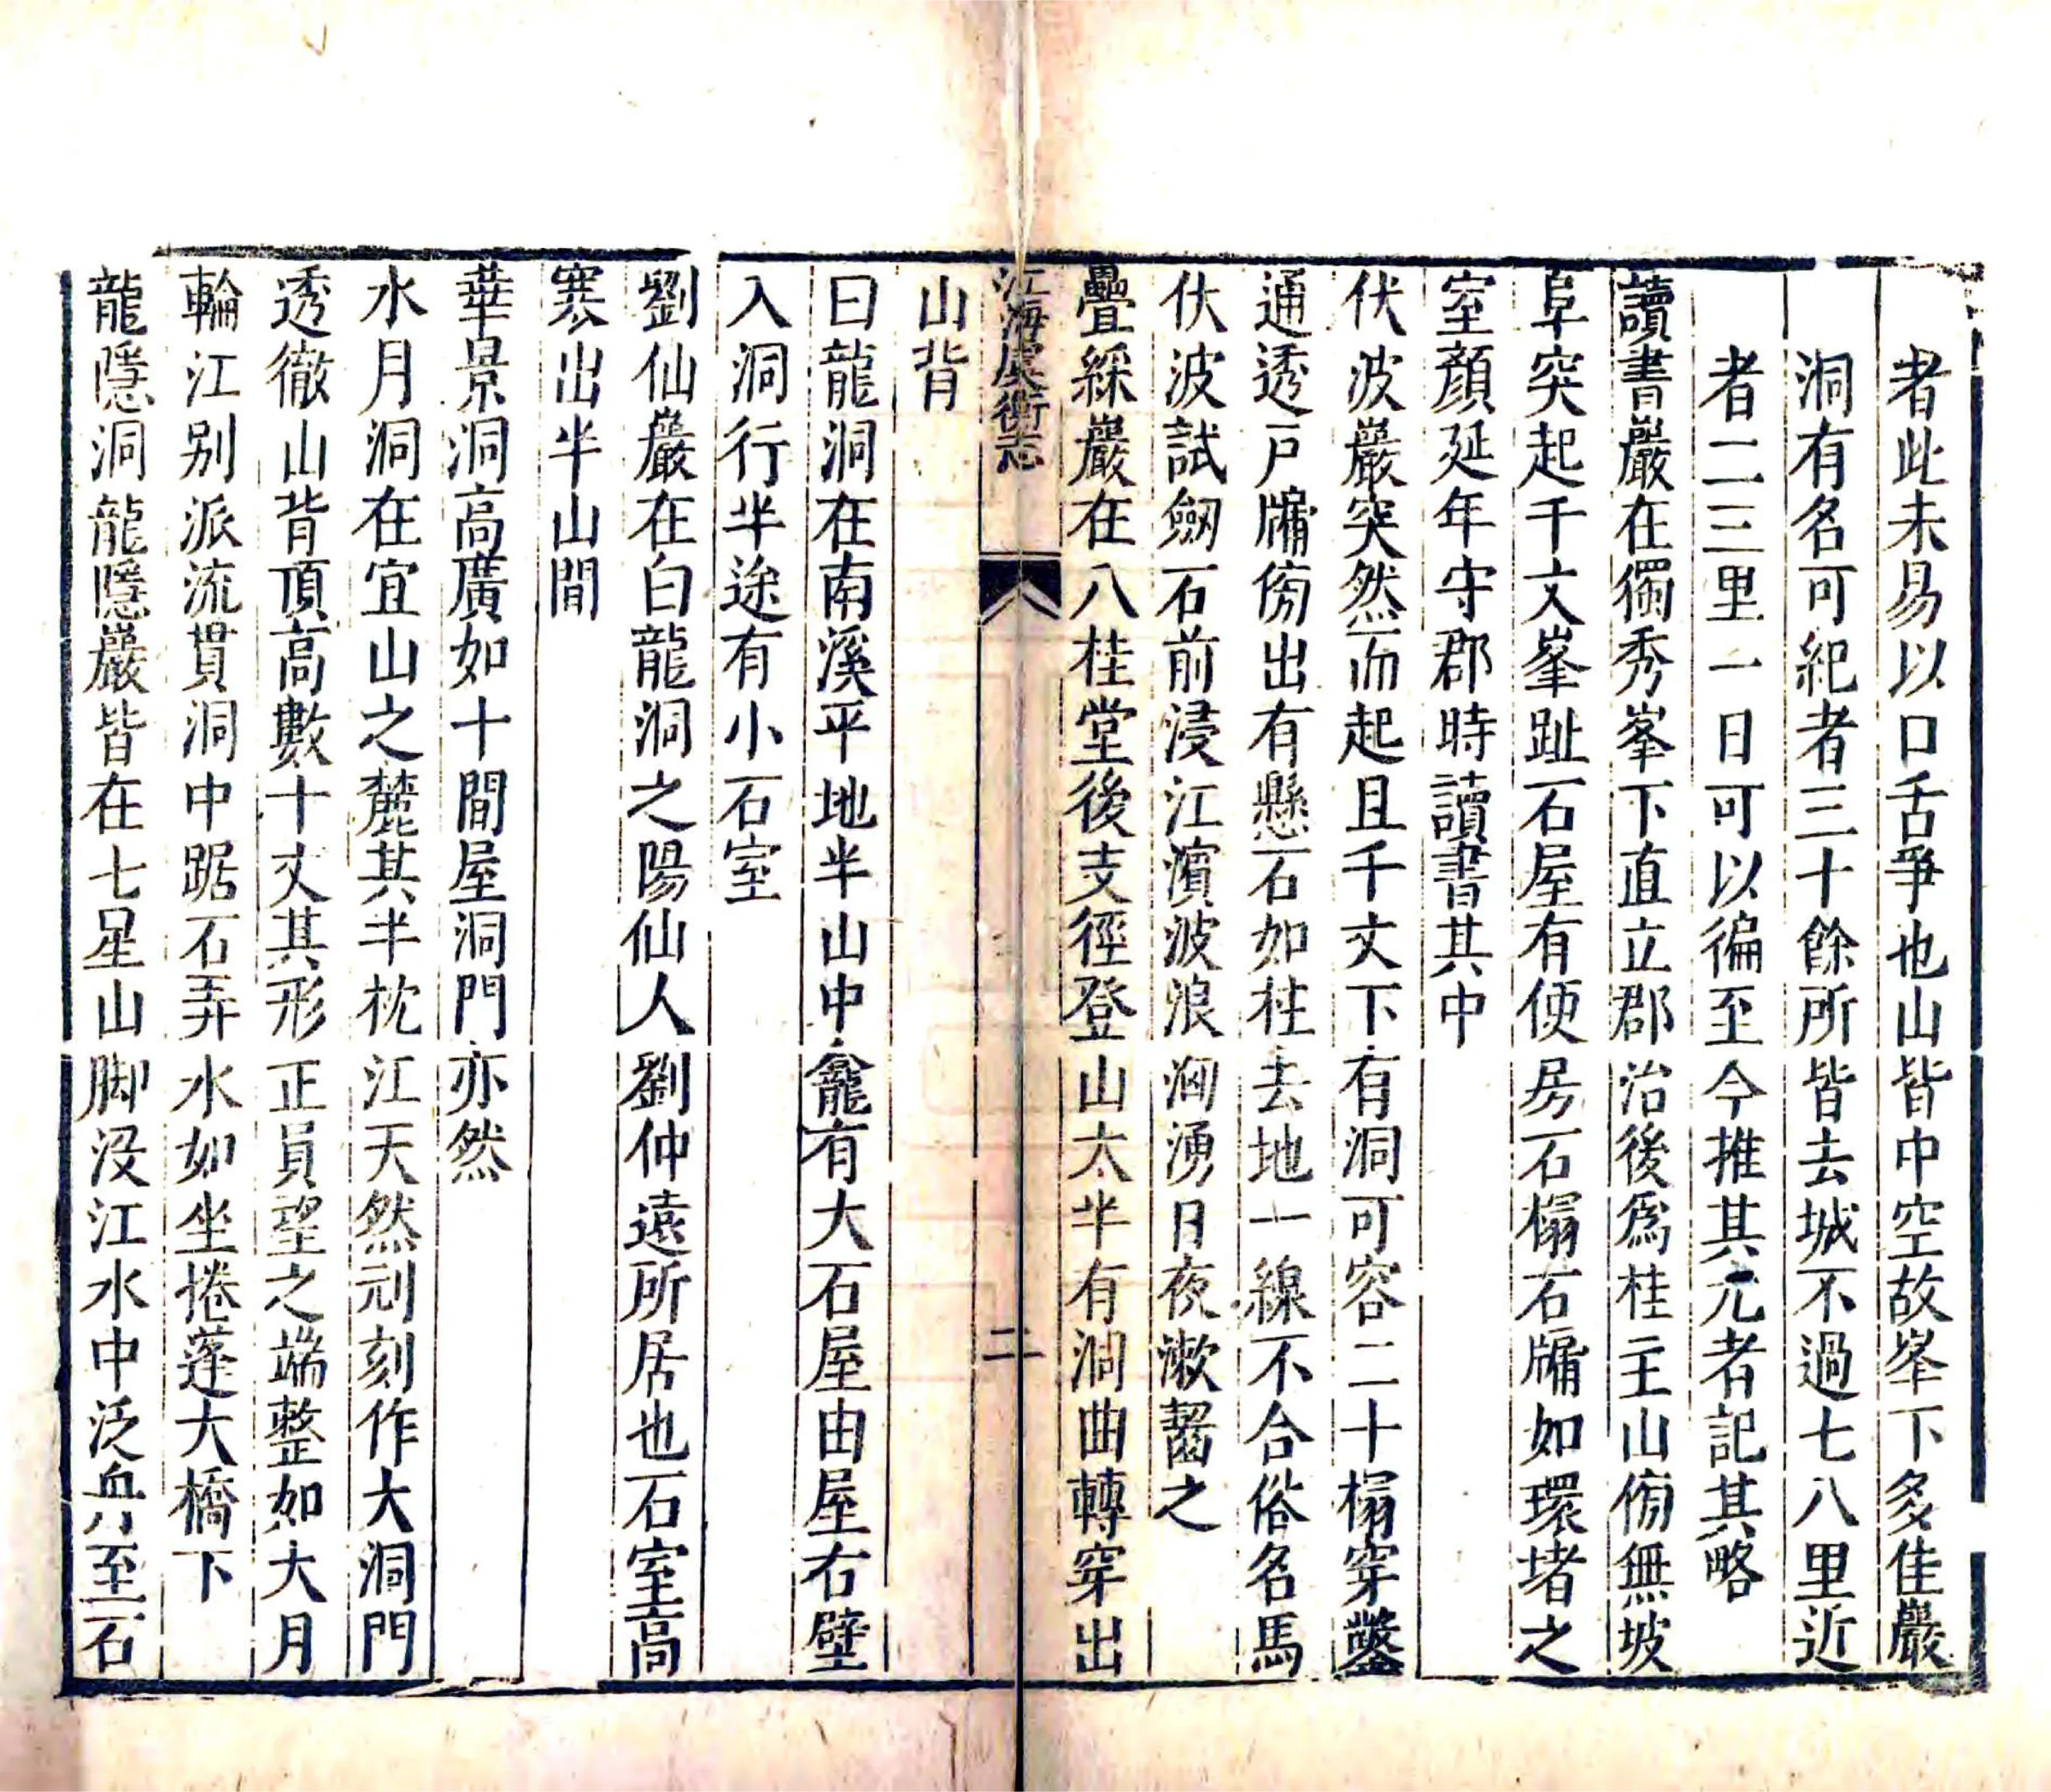 者此未易以口舌爭也山皆中空故峯下多佳巖
洞有名可紀者三十餘所皆去城不過七八里近
者二三里一日可以徧至今推其尤者記其略
讀書巖在獨秀峯下直立郡治後爲桂主山傍無坡
阜突起千丈峯趾石屋有便房石榻石牖如環堵之
室顏延年守郡時讀書其中
伏波巖突然而起且千丈下有洞可容二十榻穿鑿
通透戸牖傍出有懸石如柱去地一線不合俗名馬
伏波試劒石前浸江濱波浪洶湧日夜漱齧之
疊綵巖在八桂堂後支徑登山太半有洞曲轉穿出
江海虞衡志
二
山背
曰龍洞在南溪平地半山中龕有大石屋由屋右壁
入洞行半途有小石室
劉仙巖在白龍洞之陽仙人劉仲遠所居也石室高
寒出半山間
華景洞高廣如十間屋洞門亦然
水月洞在宜山之麓其半枕江天然刓刻作大洞門
透徹山背頂高數十丈其形正員望之端整如大月
輪江别派流貫洞中踞石弄水如坐捲蓬大橋下
龍隱洞龍隱巖皆在七星山脚没江水中泛舟至石